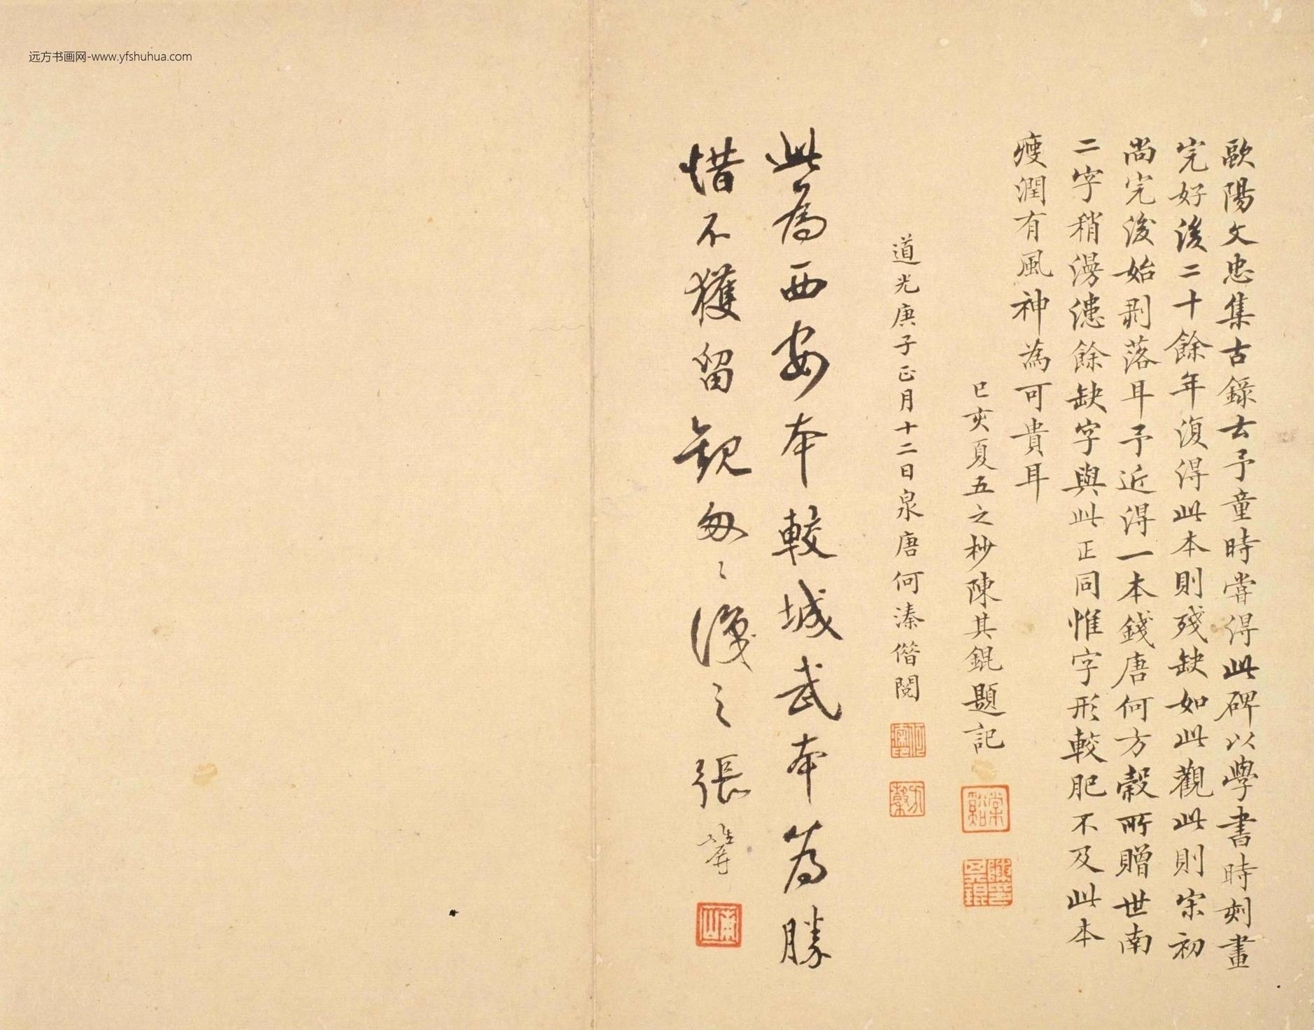 远方书画网-www.yfshuhua.com
歐陽文忠集古錄云予童時嘗得此碑以學書時刻畫
完好後二十餘年復得此本則殘缺如此觀此則宋初
尚完後始剥落耳予近得一本錢唐何方穀所贈世南
二字稍漫漶餘缺字與此正同惟字形較肥不及此本
瘦潤有風神為可貴耳
己亥夏五之杪陳其錕題記
道光庚子正月十二日泉唐何溱偕閱
此為西安本較城武本為勝
惜不獲留觀匆匆識之張